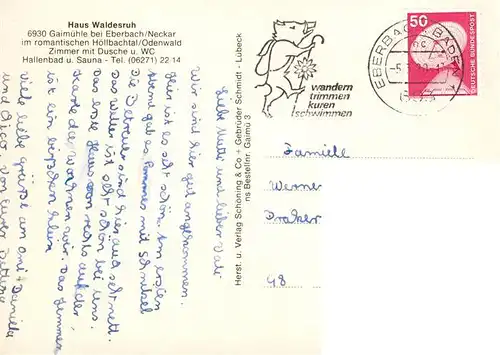 Haus Waldesruh
6930 Gaimühle bei Eberbach/Neckar
im romantischen Höllbachtal/Odenwald
Zimmer mit Dusche u. WC
Hallenbad u. Sauna - Tel. (06271) 22 14
wandern
trimmen
kuren
schwimmen
EBERBACH, BADEN
50
DEUTSCHE BUNDESPOST
Herst. u. Verlag Schöning & Co + Gebrüder Schmidt - Lübeck
ns Bestellnr. Gaimü 3
Liebe Mutti und lieber Vati
Wir sind hier gut angekommen.
Hier ist es sehr schön. Am ersten
Abend gab es Pommes mit Schnitzel
Die Betreuer sind hier auch sehr nett.
Das Wetter ist sehr schön bei uns.
Das erste Haus von rechts auf der
Karte da wohnen wir. Das Zimmer
ist ein bißchen klein
Viele liebe Grüße an Omi + Daniella
und Von Eurer Bettina
Familie
Werner
48